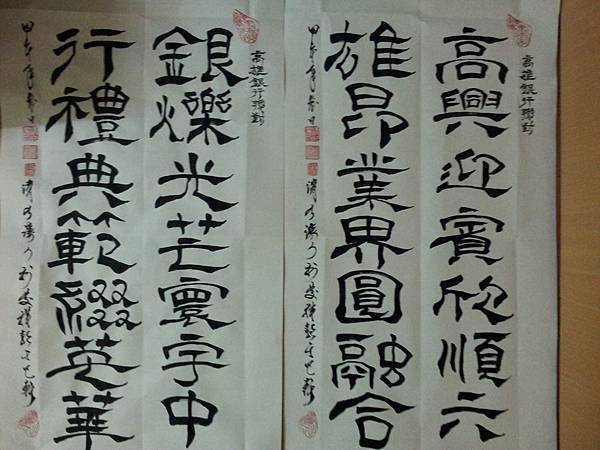 高雄銀行聯對
高興迎賓欣順六
雄昂業界圓融合
甲午年春日
高雄銀行聯對
銀爍光芒寰宇中
行禮典範綴英華
甲午年春日